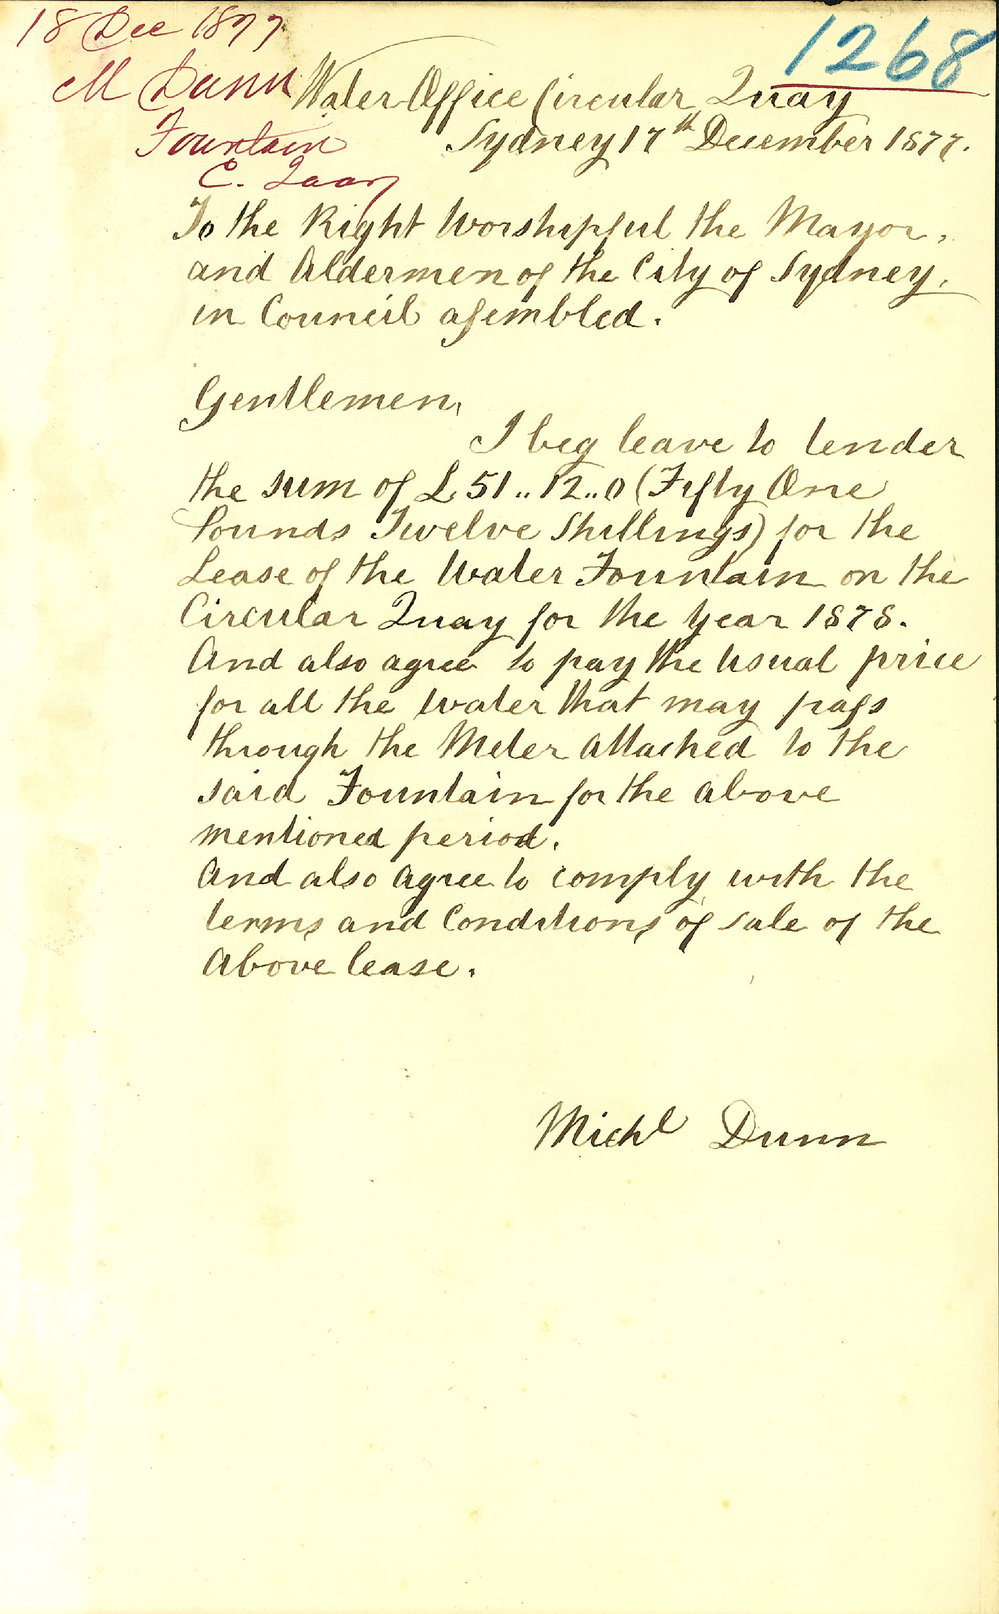 18 Dec 1877
1268
M Dunn
Fountain
C. Quay
Water Office Circular Quay
Sydney 17th December 1877.
To the Right Worshipful the Mayor,
and Aldermen of the City of Sydney,
in Council asembled.
Gentlemen,
I beg leave to tender
the sum of £51..12..0 (Fifty One
Pounds Twelve Shillings) for the
Lease of the Water Fountain on the
Circular Quay for the Year 1878.
And also agree to pay the Usual price
for all the Water that may pass
through the Meter Attached to the
said Fountain for the above
mentioned period.
And also Agree to comply with the
terms and Conditions of sale of the
Above lease.
Michl Dunn